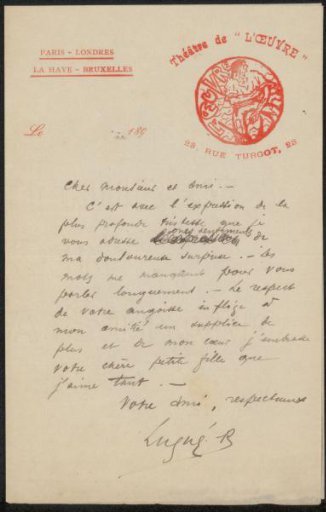 PARIS - LONDRES
LA HAYE - BRUXELLES
Théâtre de "L'ŒUVRE"
23, RUE TURGOT, 23
Le 189
Cher monsieur et ami. -
C'est avec l'expression de la
plus profonde tristesse que je
vous adresse mes sentiments de
ma douloureuse surprise. - Les
mots me manquent pour vous
parler longuement. - Le respect
de votre angoisse inflige à
mon amitié un supplice de
plus et de mon cœur j'embrasse
votre chère petite fille que
j'aime tant. -
Votre ami, respectueux
Lugné-P